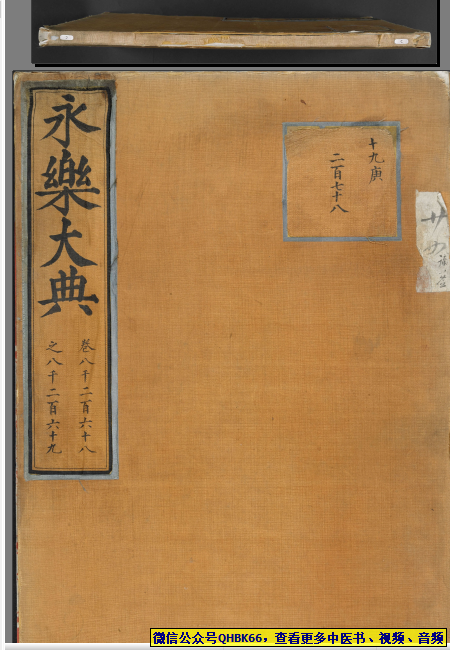 十九庚
二百七十八
永樂大典
卷八千二百六十八
之八千二百六十九
廿
微信公众号QHBK66，查看更多中医书、视频、音频